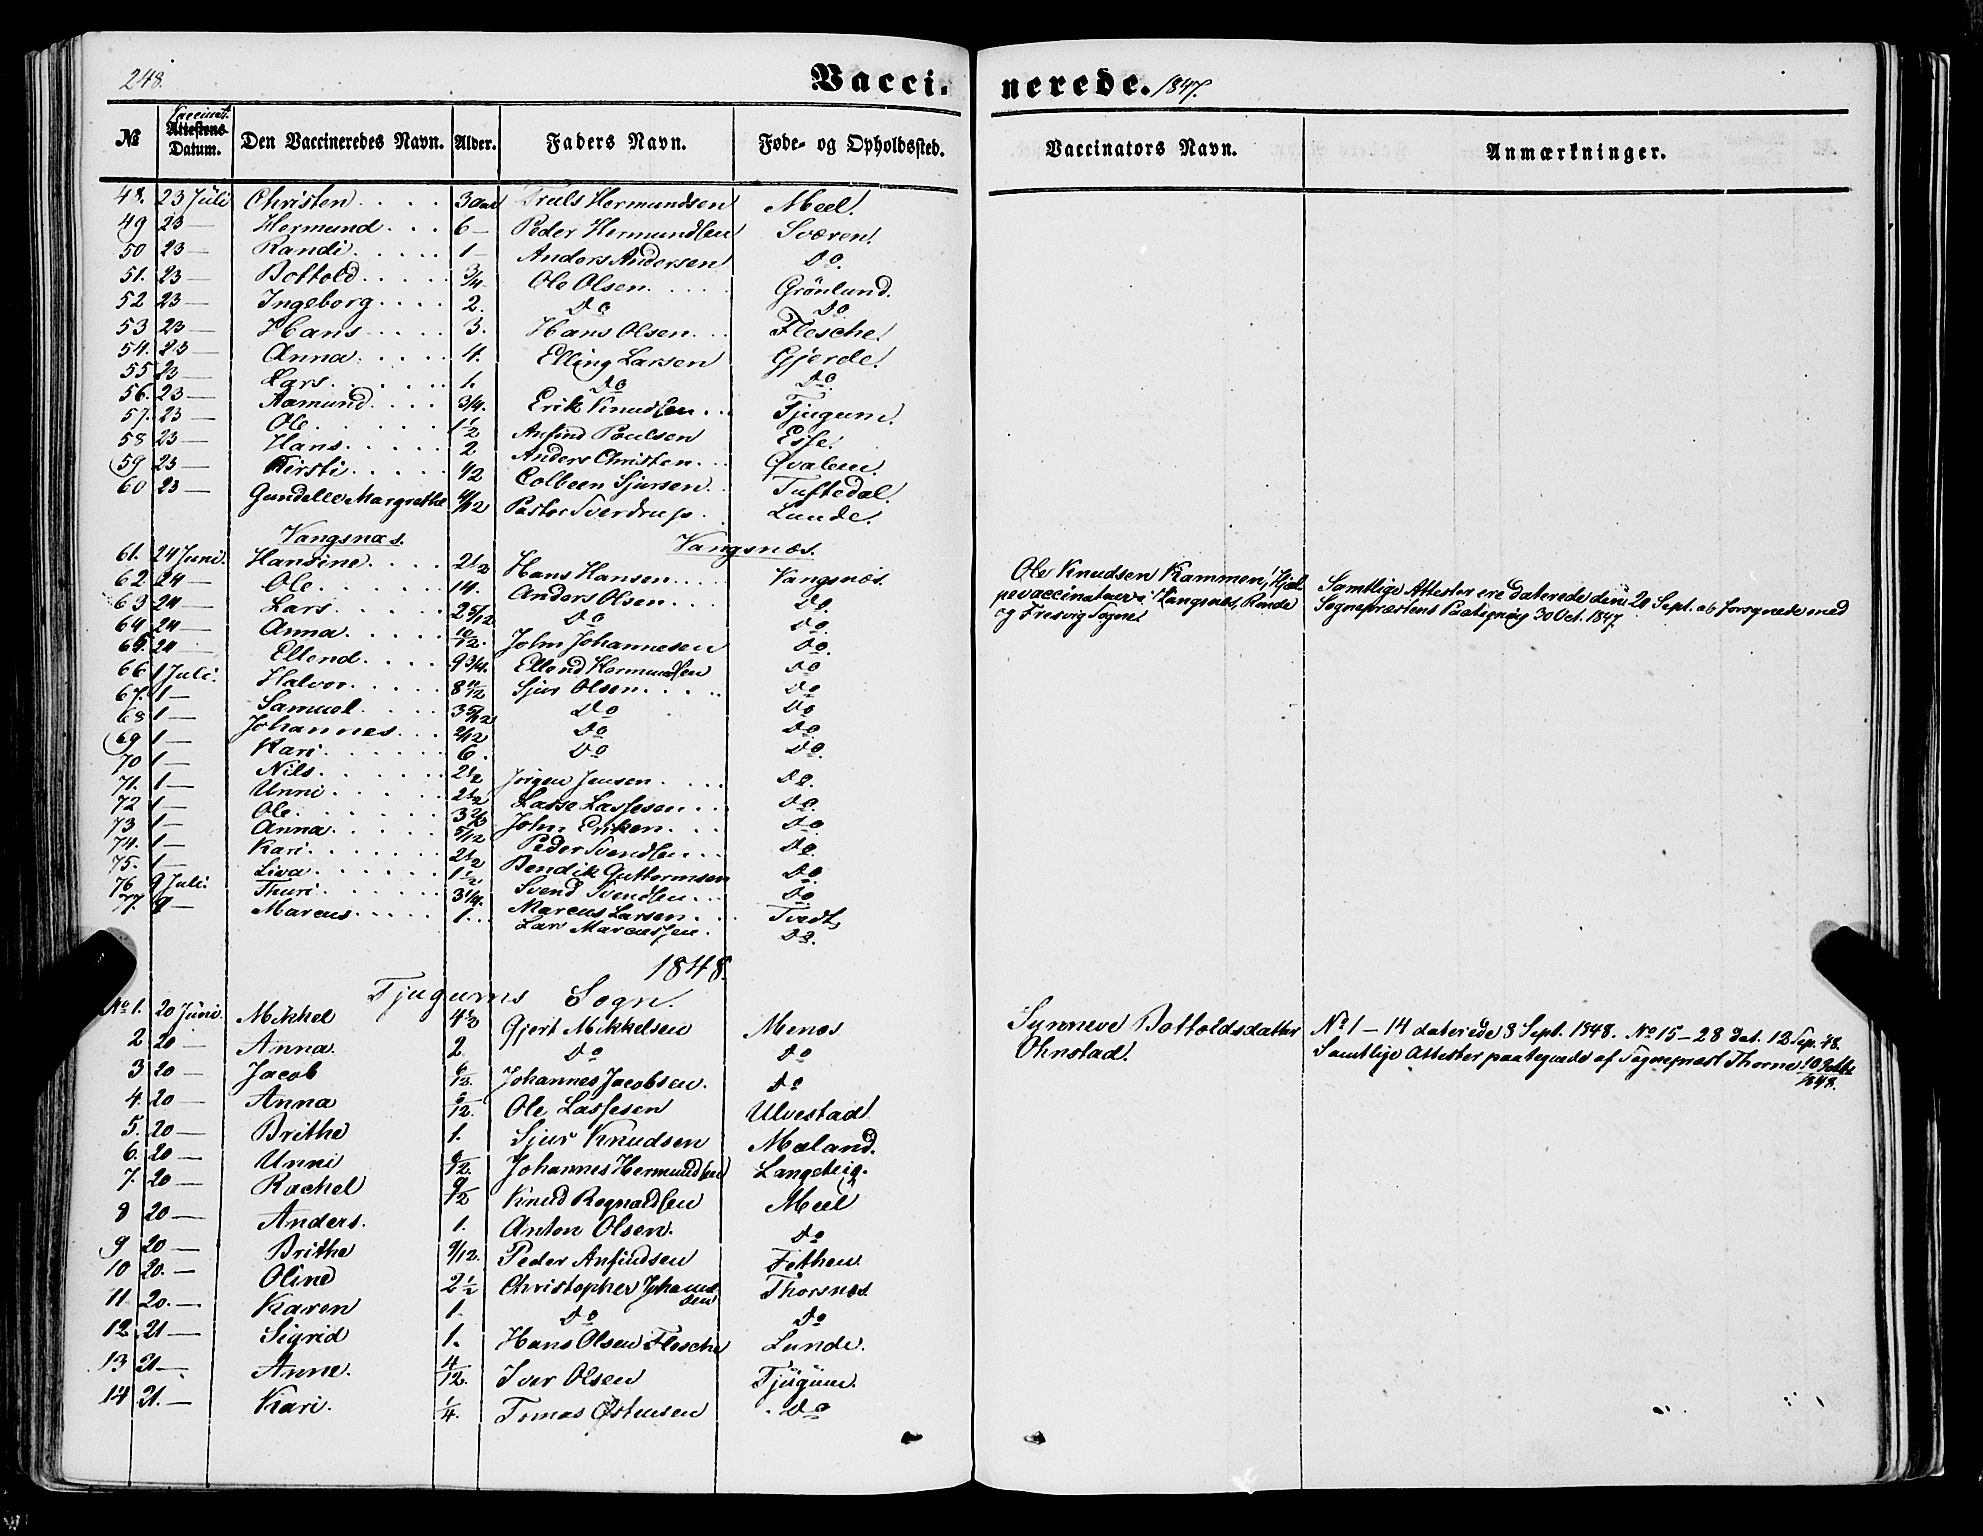 248.
Vaccinerede. 1847.
№ Vaccinat. Attestens Datum. Den Vaccineredes Navn. Alder. Faders Navn. Føde- og Opholdssted. Vaccinators Navn. Anmærkninger.
48. 23 Juli Christen 3 aar Truls Hermundsen Meel.
49 23 — Hermund 6 — Peder Hermundsen Sværen.
50 23 — Randi 1 — Anders Andersen Do.
51. 23 — Bottold 3/4 Ole Olsen Grönlund.
52 23 — Ingeborg 2. Do Do.
53 23 — Hans 3. Hans Olsen Flesche.
54. 23 — Anna 4. Elling Larsen Gjerde.
55 23 — Lars 1. Do Do.
56. 23 — Aamund 3/4. Erik Knudsen Tjugum.
57. 23 — Ole 1 1/2 Anfind Poulsen Esse.
58 23 — Hans 2 Anders Christen Qvalem.
59 23 — Kirsti 1/2 Colbeen Sjursen Tuftedal.
60 23 — Gundelle Margrethe 4/12 Pastor Sverdrup Lunde.
Vangsnæs. Vangsnæs.
61. 24 Juni Hansine 2 1/2 Hans Hansen Vangsnæs
62. 24 — Ole 14. Anders Olsen Do.
63 24 — Lars 2 5/12 Do Do.
64 24 — Anna 10/12. John Johannesen Do.
65. 24 — Ellend 9 3/4. Ellend Hermundsen Do
66 1 Juli. Halvor 8 11/12 Sjur Olsen Do
67. 1 — Samuel 3 5/12 Do Do
68 1 — Johannes 2/12 Do Do
69 1 — Kari 6. Do Do.
70 1 — Nils 2 1/2 Jörgen Jensen Do.
71. 1 — Unni 2 1/2 Lasse Lassesen Do.
72 1 — Ole 3 2/3 John Eriksen Do.
73 1 — Anna 5/12 Peder Svendsen Do.
74. 1 — Kari 2 1/2 Bendik Guttormsen Do.
75. 1 — Liva 1 1/2 Svend Svendsen Do.
76 9 Juli. Thuri 3 1/4. Marcus Larsen Tvedt,
77. 9 — Marcus 1. Lars Marcussen Do.
Ole Knudsen Kammen, Hjel
pevaccinateur i Vangsnæs, Rende
og Fresvig Sogne
Samtlige Attester ere daterede den 20 Sept. og forsynede med
Sognepræstens Paategning 30 Oct. 1847.
1848.
Tjugums Sogn.
No 1. 20 Juni. Mikkel 4 1/2 Gjert Mikkelsen Menes
2 20 — Anna 2 Do Do
3 20 — Jacob 6/12. Johannes Jacobsen. Do
4. 20 — Anna 6/12. Ole Lassesen Ulvestad
5. 20 — Brithe 1. Sjur Knudsen Mæland.
6. 20 — Unni 6/12. Johannes Hermundsen Langeteig.
7. 20 — Rachel 9/12 Knud Regnaldsen Meel
8 20 — Anders. 1. Anton Olsen. Do
9 20 — Brithe 9/12. Peder Anfindsen Fethen
10 20. — Oline 2 1/2 Christopher Johannessen Thorsnæs
11. 20. — Karen 1. Do Do
12. 21 — Sigrid 1. Hans Olsen Flesche Lunde.
13 21 — Anne. 4/12. Iver Olsen Tjugum.
14 21. — Kari. 1/4. Tomas Østensen Do
Synneve Bottoldsdatter
Ohnstad.
No 1 — 14 daterede 8 Sept. 1848. No 15 — 28 dat. 12 Sep. 48.
Samtlige Attester paategnede af Sognepræst Thorne 10 Octbr 1848.